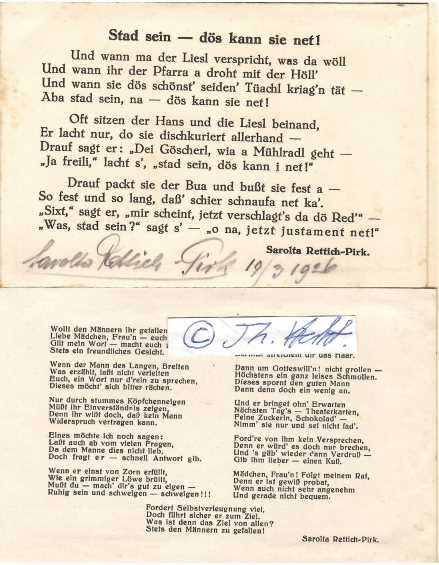 Stad sein — dös kann sie net!
Und wann ma der Liesl verspricht, was da wöll
Und wann ihr der Pfarra a droht mit der Höll'
Und wann sie dös schönst' seiden' Tüachl kriag'n tät —
Aba stad sein, na — dös kann sie net!
Oft sitzen der Hans und die Liesl beinand,
Er lacht nur, do sie dischkuriert allerhand —
Drauf sagt er: „Dei Göscherl, wia a Mühlradl geht —
„Ja freili,“ lacht s', „stad sein, dös kann i net!“
Drauf packt sie der Bua und bußt sie fest a —
So fest und so lang, daß' schier schnaufa net ka'.
„Sixt,“ sagt er, „mir scheint, jetzt verschlagt's da dö Red'“ —
„Was, stad sein?“ sagt s' — „o na, jetzt justament net!“
Sarolta Rettich-Pirk.
Sarolta Rettich-Pirk 19/3 1926
Wollt den Männern ihr gefallen
Liebe Mädchen, Frau'n — euch
Gilt mein Wort — macht euch
Stets ein freundliches Gesicht.
Wenn der Mann des Langen, Breiten
Was erzählt, laßt nicht verleiten
Euch, ein Wort nur d'rein zu sprechen,
Dieses möcht' sich bitter rächen.
Nur durch stummes Köpfchenneigen
Müßt ihr Einverständnis zeigen,
Denn ihr wißt doch, daß kein Mann
Widerspruch vertragen kann.
Eines möcht ich noch sagen:
Laßt auch ab vom vielen Fragen,
Da dem Manne dies nicht lieb.
Doch fragt er — schnell Antwort gib.
Wenn er einst von Zorn erfüllt,
Wie ein grimmiger Löwe brüllt,
Mußt du — mach' dir's gut zu eigen —
Ruhig sein und schweigen — schweigen!!!
©
streichein dir das Haar.
Dann um Gotteswill'n! nicht grollen —
Höchstens ein ganz leises Schmollen.
Dieses spornt den guten Mann
Dann denn doch ein wenig an.
Und er bringet ohn' Erwarten
Nächsten Tag's — Theaterkarten,
Feine Zuckerln, Schokolad' —
Nimm' sie nur und sei nicht fad'.
Ford're von ihm kein Versprechen,
Denn er würd' es doch nur brechen,
Und 's gäb' wieder d'ann Verdruß —
Gib ihm lieber — einen Kuß.
Mädchen, Frau'n! Folgt meinem Rat,
Denn er ist gewiß probat,
Wenn auch nicht sehr angenehm
Und gerade nicht bequem.
Fordert Selbstverleugnung viel,
Doch führt sicher er zum Ziel.
Was ist denn das Ziel von allen?
Stets den Männern zu gefallen!
Sarolta Rettich-Pirk.